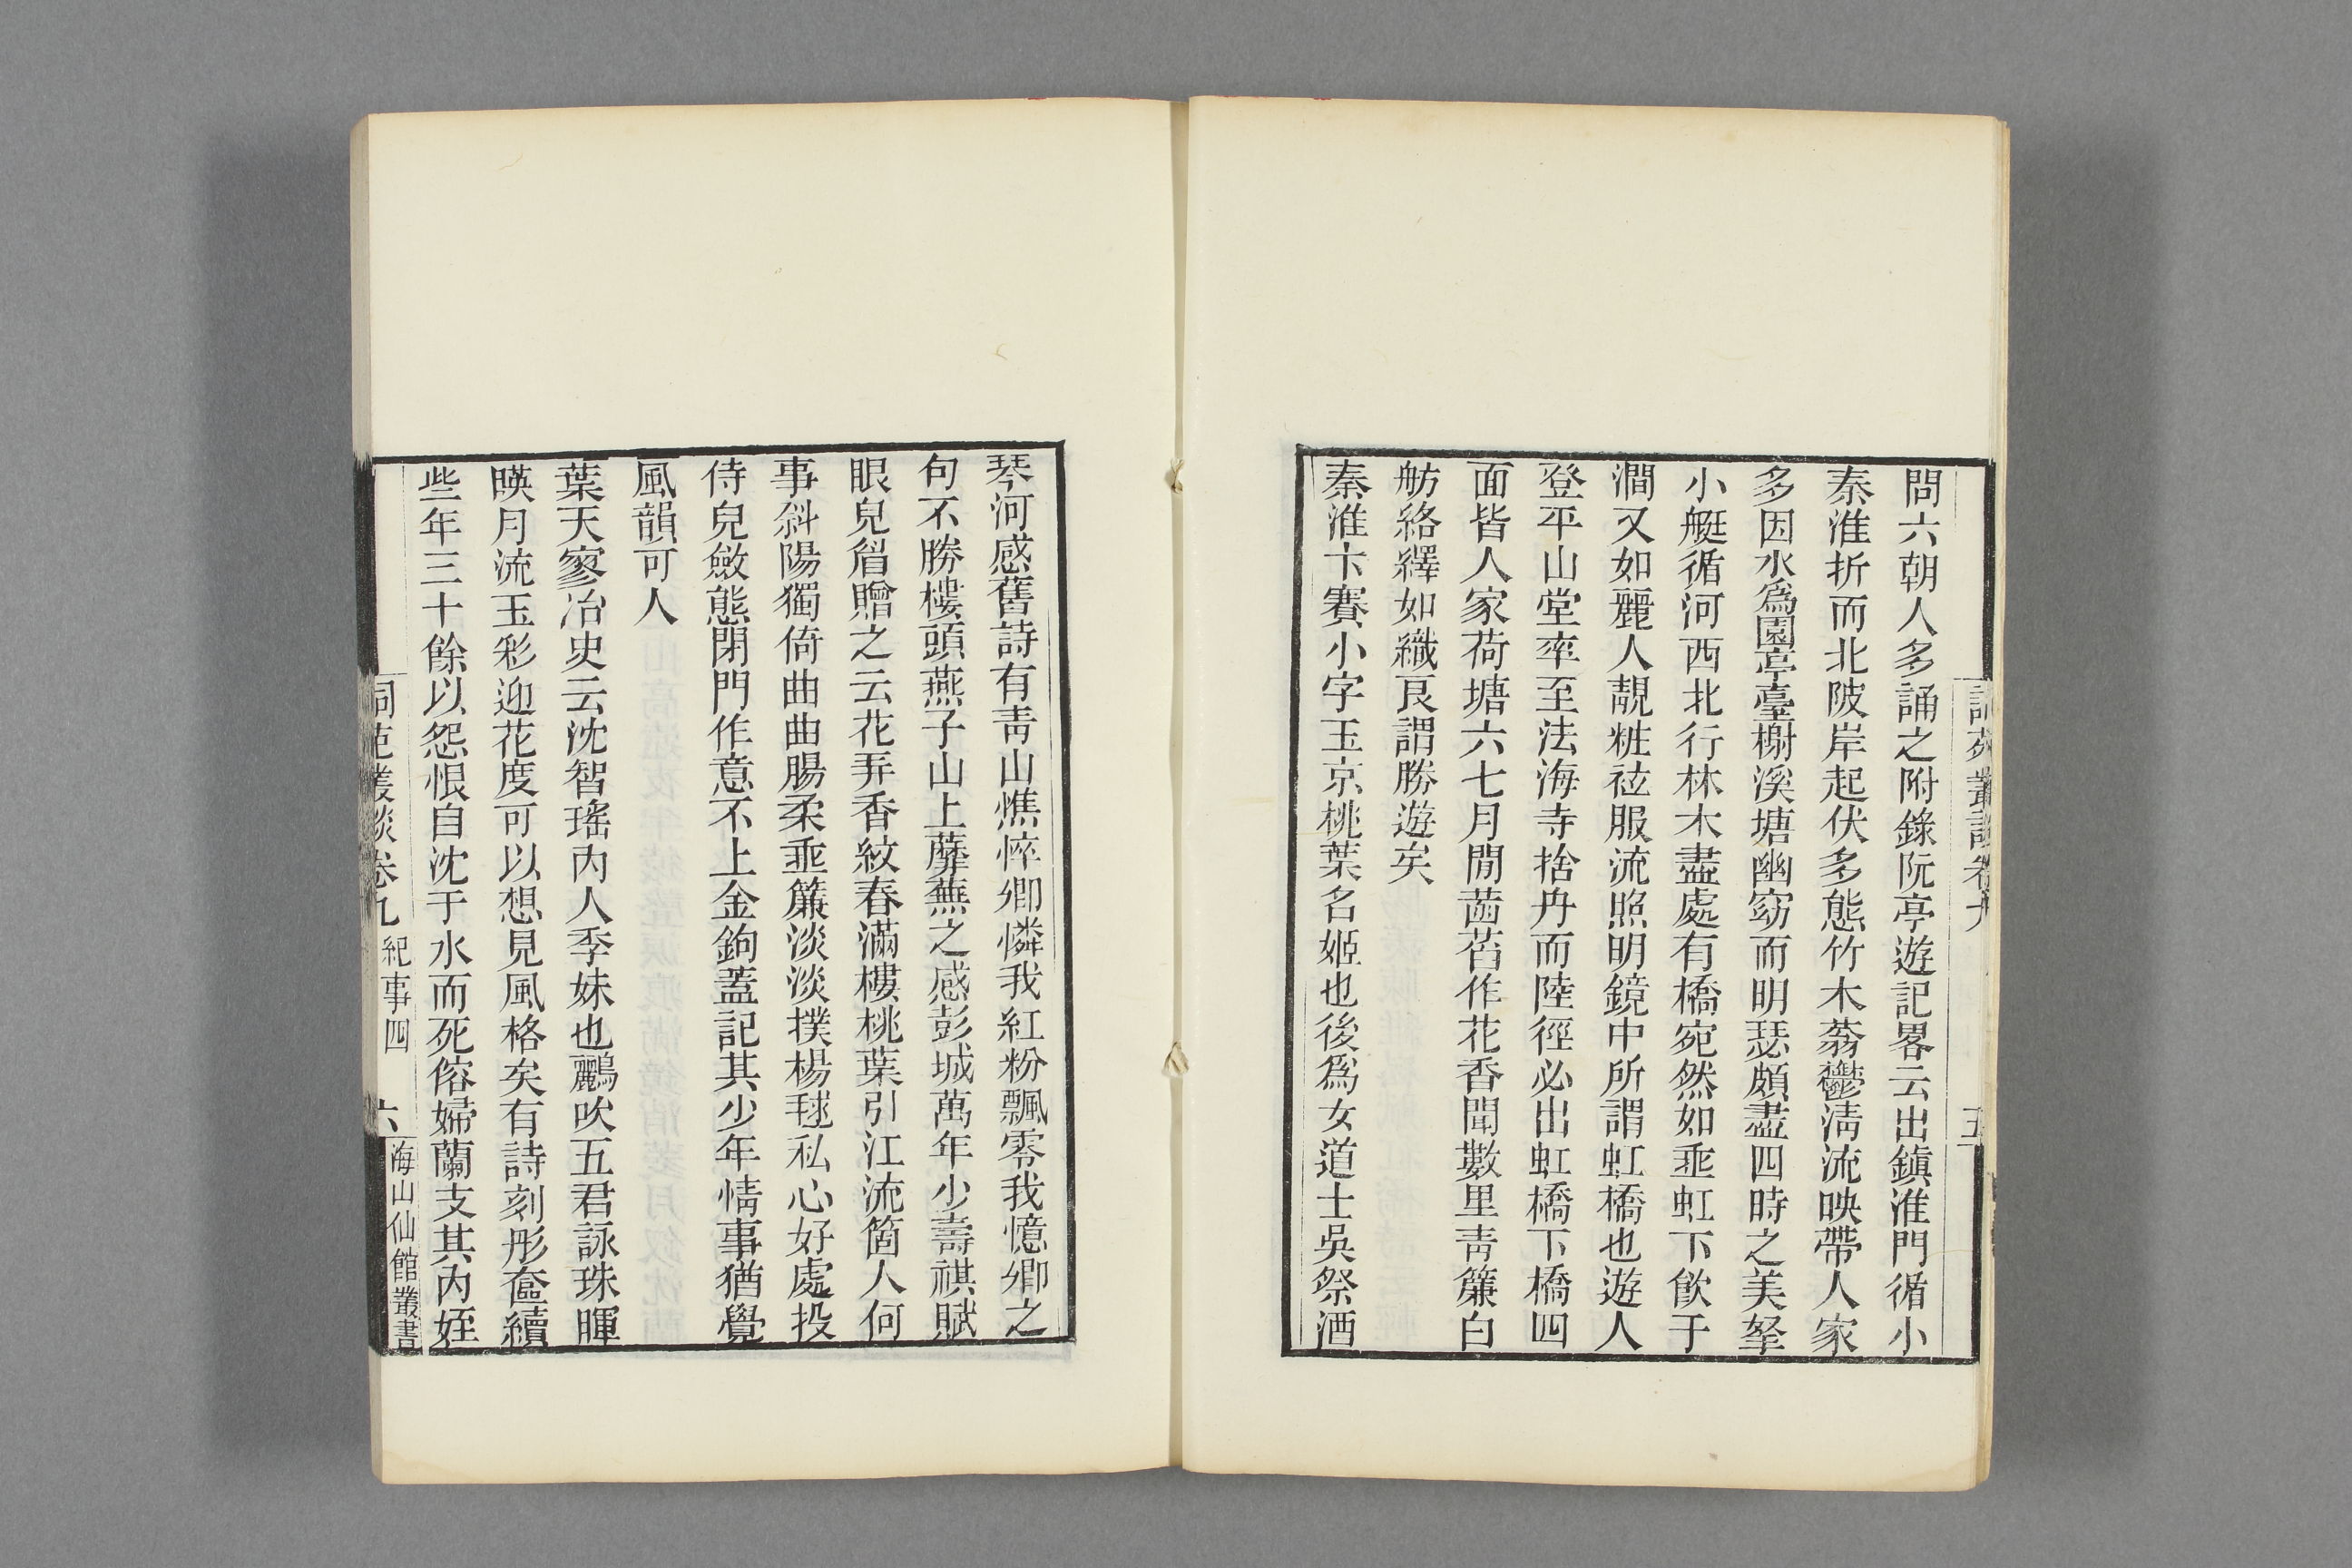 詞苑叢談卷九
五
問六朝人多誦之附錄阮亭遊記畧云出鎮淮門循小
秦淮折而北陂岸起伏多態竹木蓊鬱淸流映帶人家
多因水爲園亭臺榭溪塘幽窈而明瑟頗盡四時之美拏
小艇循河西北行林木盡處有橋宛然如垂虹下飮于
澗又如麗人靚粧袨服流照明鏡中所謂虹橋也遊人
登平山堂率至法海寺捨舟而陸徑必出虹橋下橋四
面皆人家荷塘六七月閒菡萏作花香聞數里靑簾白
舫絡繹如織良謂勝遊矣
秦淮卞賽小字玉京桃葉名姬也後爲女道士吳祭酒
琴河感舊詩有靑山憔悴卿憐我紅粉飄零我憶卿之
句不勝樓頭燕子山上蘼蕪之感彭城萬年少壽祺賦
眼兒眉贈之云花弄香紋春滿樓桃葉引江流箇人何
事斜陽獨倚曲曲腸柔垂簾淡淡撲楊毬私心好處投
侍兒斂態閉門作意不上金鉤蓋記其少年情事猶覺
風韻可人
葉天寥冶史云沈智瑤內人季妹也鸝吹五君詠珠暉
暎月流玉彩迎花度可以想見風格矣有詩刻彤奩續
些年三十餘以怨恨自沈于水而死傛婦蘭支其內姪
詞苑叢談卷九 紀事四
六
海山仙館叢書